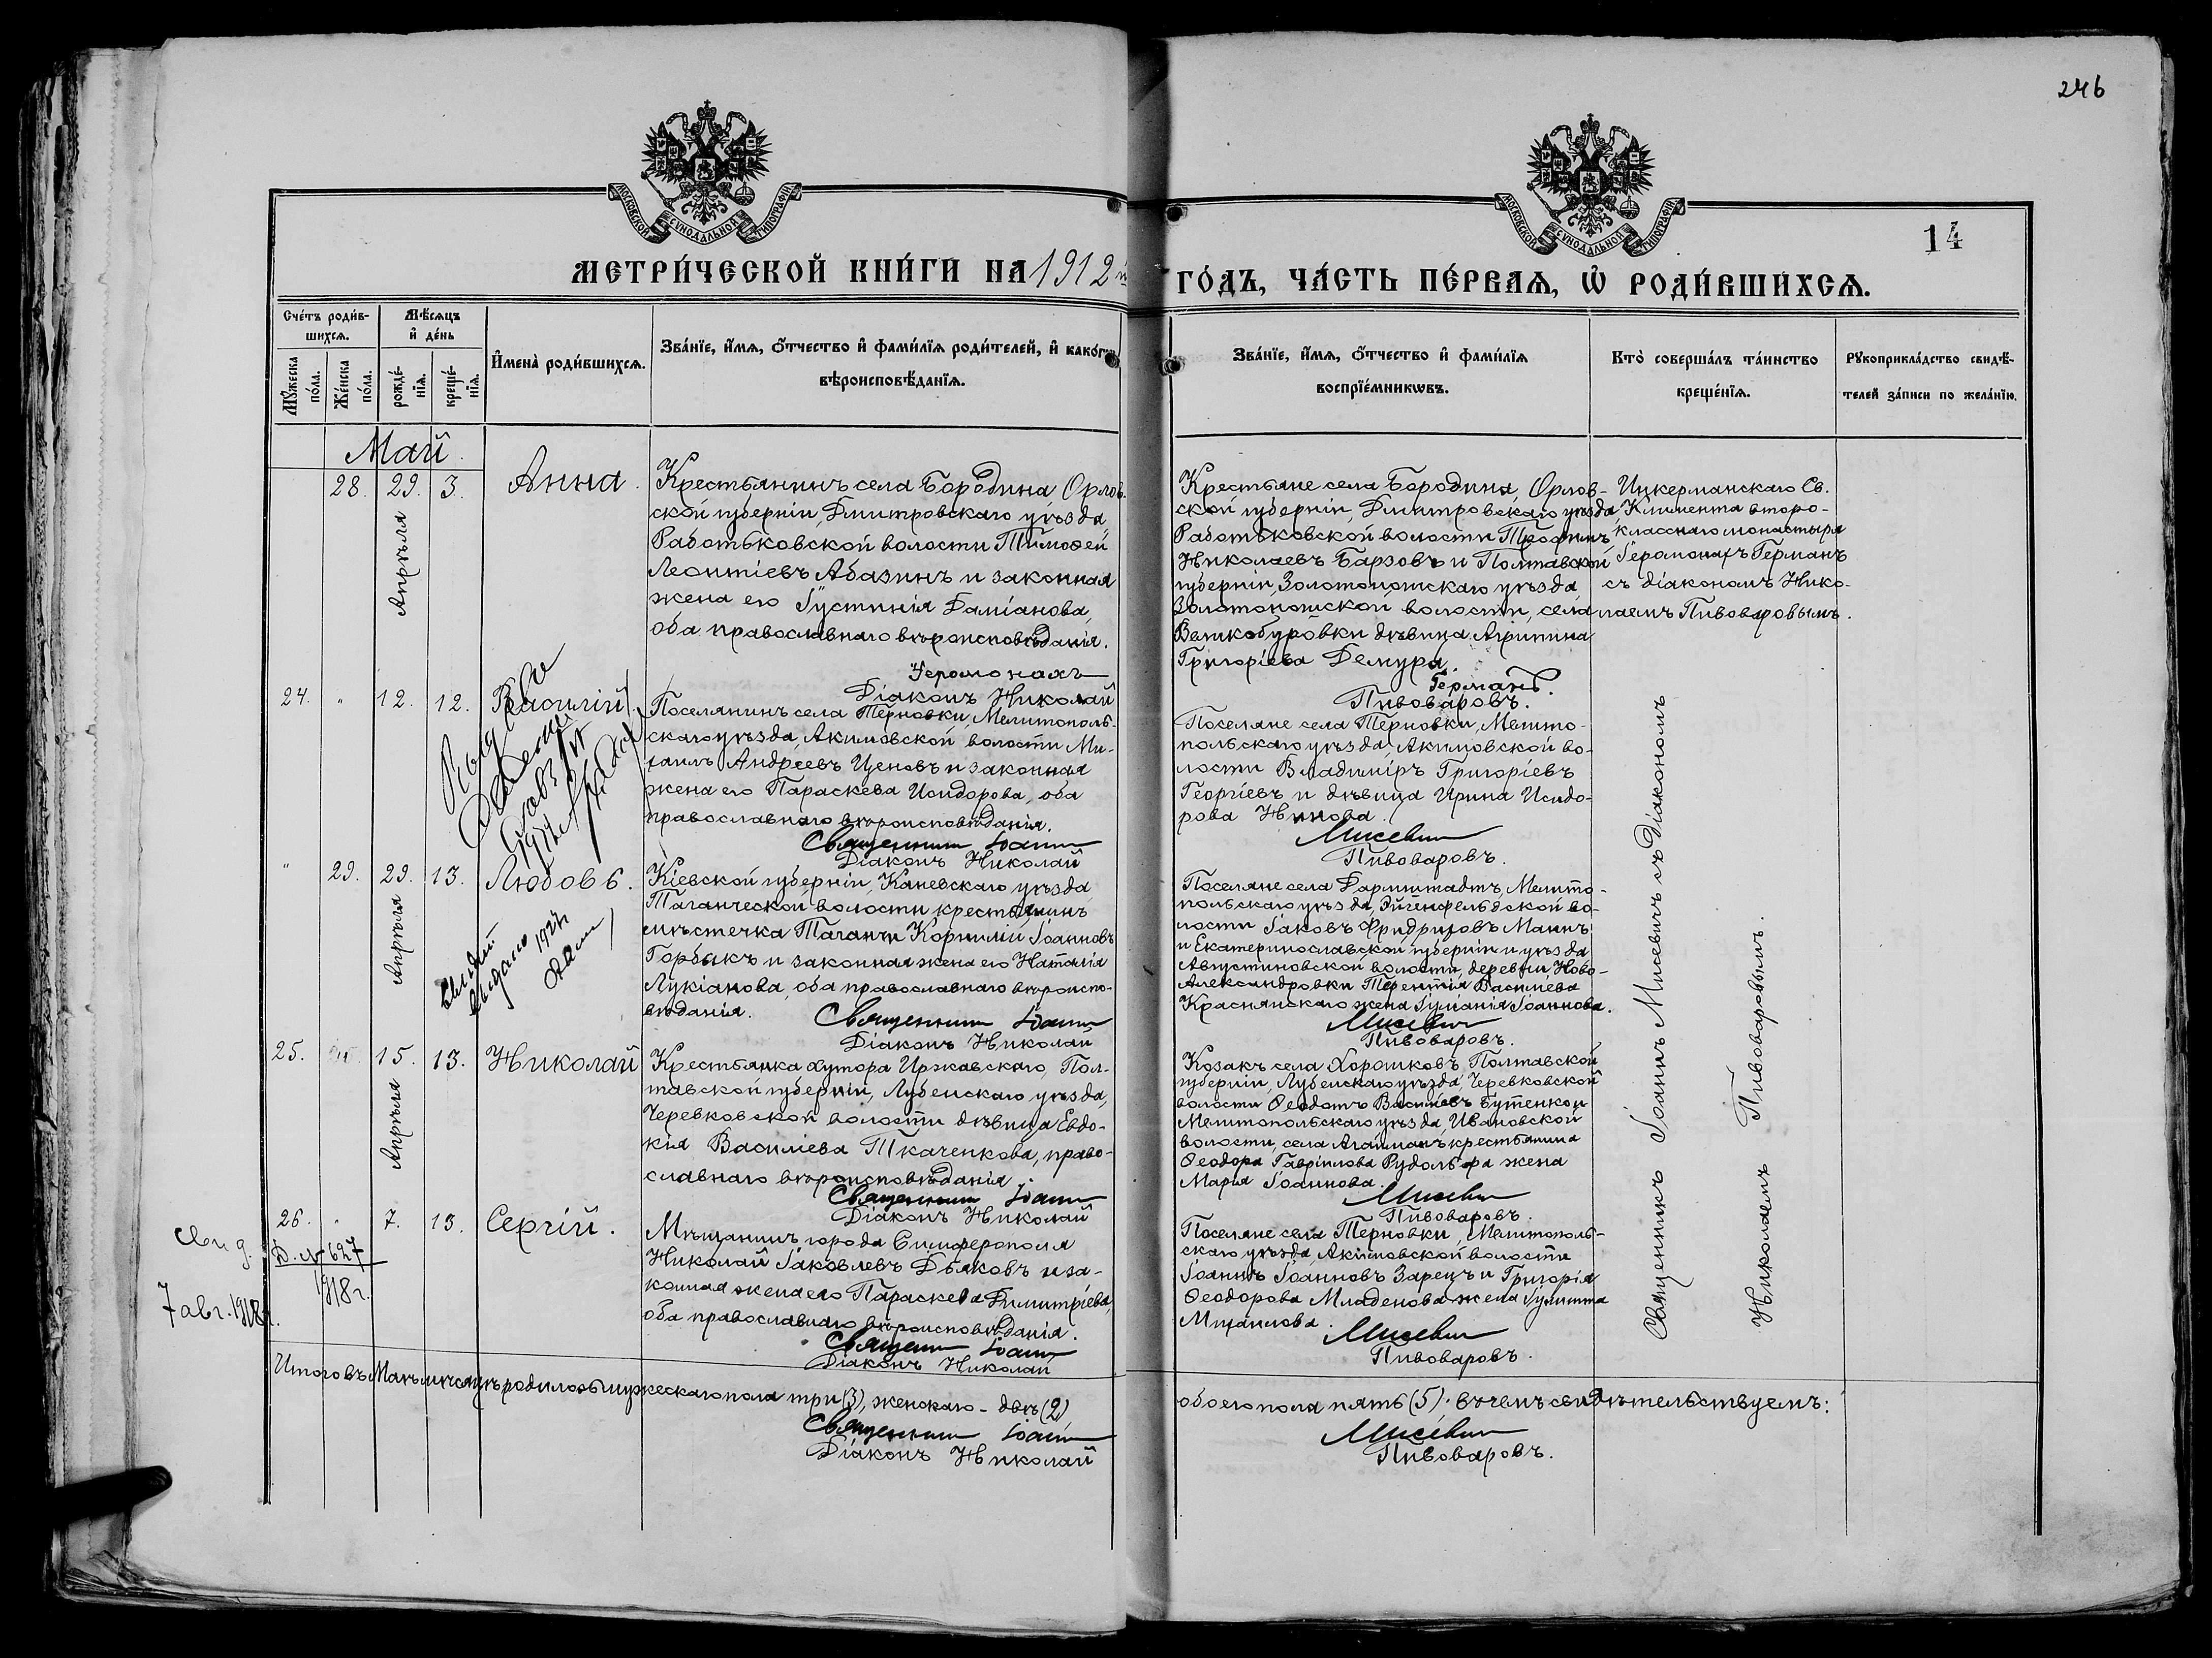 246
МОСКОВСКОЙ СѴНОДАЛЬНОЙ ТИПОГРАФІИ
МОСКОВСКОЙ СѴНОДАЛЬНОЙ ТИПОГРАФІИ
14
МЕТРИ́ЧЕСКОЙ КНИ́ГИ НА 1912 й
ГО́ДЪ, ЧА́СТЬ ПЕ́РВАѦ, Ѡ҆ РОДИ́ВШИХСѦ.
Сче́тъ роди́в-
шихсѧ.
Мѣ́сѧцъ
и҆ де́нь
Мꙋ́жеска
по́ла.
Же́нска
по́ла.
рожде́-
нїѧ.
креще́-
нїѧ.
И҆мена̀ роди́вшихсѧ.
Зва́нїе, и҆́мѧ, ѻ҆́тчество и҆ фами́лїѧ роди́телей, и҆ како́гѡ
вѣроисповѣ́данїѧ.
Зва́нїе, и҆́мѧ, ѻ҆́тчество и҆ фами́лїѧ
воспрїе́мникѡвъ.
Кто̀ соверша́лъ та́инство
креще́нїѧ.
Рꙋкоприкла́дство свидѣ́-
телей за́писи по жела́нїю.
Май.
28. 29. 3. Анна.
Апрѣля
Крестьянинъ села Бородина Орлов-
ской губерніи, Дмитровскаго уѣзда,
Работьковской волости Тимоѳей
Леонтіевъ Абазинъ и законная
жена его Іустинія Даміанова,
оба православнаго вѣроисповѣданія.
Іеромонахъ
Діаконъ Николай
Крестьяне села Бородина, Орлов-
ской губерніи, Дмитровскаго уѣзда,
Работьковской волости Трофимъ
Николаевъ Барзовъ и Полтавской
губерніи, Золотоношскаго уѣзда,
Золотоношской волости, села
Великобуровки дѣвица Агрипина
Григоріева Демура.
Германъ.
Пивоваровъ.
Инкерманскаго Св.
Климента второ-
класснаго монастыря
Іеромонахъ Германъ
съ діакономъ Нико-
лаемъ Пивоваровымъ.
24. " 12. 12. Василій.
Поселянинъ села Терновки, Мелитополь-
скаго уѣзда, Акимовской волости Ми-
хаилъ Андреевъ Ценовъ и законная
жена его Параскева Исидорова, оба
православнаго вѣроисповѣданія.
Священникъ Іоаннъ
Діаконъ Николай
Поселяне села Терновки, Мелито-
польскаго уѣзда, Акимовской во-
лости Владиміръ Григоріевъ
Георгіевъ и дѣвица Ирина Исидо-
рова Нинова.
Мисевичъ
Пивоваровъ.
" 29. 29. 13. Любовь.
Апрѣля
выдано 192
Кіевской губерніи, Каневскаго уѣзда
Таганческой волости крестьянинъ
мѣстечка Таганчи Корнилій Іоанновъ
Горбикъ и законная жена его Наталія
Лукіанова, оба православнаго вѣроиспо-
вѣданія.
Священникъ Іоаннъ
Діаконъ Николай
Поселяне села Дармштадтъ, Мелито-
польскаго уѣзда, Эйгенфельдской во-
лости Іаковъ Фридриховъ Маннъ
и Екатеринославской губерніи и уѣзда
Августиновской волости, деревни Ново-
Александровки Терентія Василіева
Краснянскаго жена Іуліанія Іоаннова.
Мисевичъ
Пивоваровъ.
25. 15. 13. Николай
Апрѣля
Крестьянка хутора Иржавскаго, Пол-
тавской губерніи, Лубенскаго уѣзда,
Черевковской волости дѣвица Евдо-
кія Василіева Ткаченкова, право-
славнаго вѣроисповѣданія.
Священникъ Іоаннъ
Діаконъ Николай
Козакъ села Хорошковъ, Полтавской
губерніи, Лубенскаго уѣзда, Черевковской
волости Ѳеодотъ Василіевъ Бутенко и
Мелитопольскаго уѣзда, Ивановской
волости, села Агайманъ крестьянина
Ѳеодора Гавріилова Рудольфа жена
Марія Іоаннова.
Мисевичъ
Пивоваровъ.
26. " 7. 13. Сергій.
Свид.
Д. № 627
1918 г.
7 авг. 1918 г.
Мѣщанинъ города Симферополя
Николай Іаковлевъ Дьяковъ и за-
конная жена его Параскева Димитріева,
оба православнаго вѣроисповѣданія.
Священникъ Іоаннъ
Діаконъ Николай
Поселяне села Терновки, Мелитополь-
скаго уѣзда, Акимовской волости
Іоаннъ Іоанновъ Зарецъ и Григорія
Ѳеодорова Младенова жена Іулитта
Михаилова.
Мисевичъ
Пивоваровъ.
Священникъ Іоаннъ Мисевичъ съ Діакономъ
Николаемъ Пивоваровымъ.
Итого въ Маѣ мѣсяцѣ родилось мужескаго пола три (3), женскаго - двѣ (2)
обоего пола пять (5). Въ чемъ свидѣтельствуемъ:
Священникъ Іоаннъ
Діаконъ Николай
Мисевичъ
Пивоваровъ.